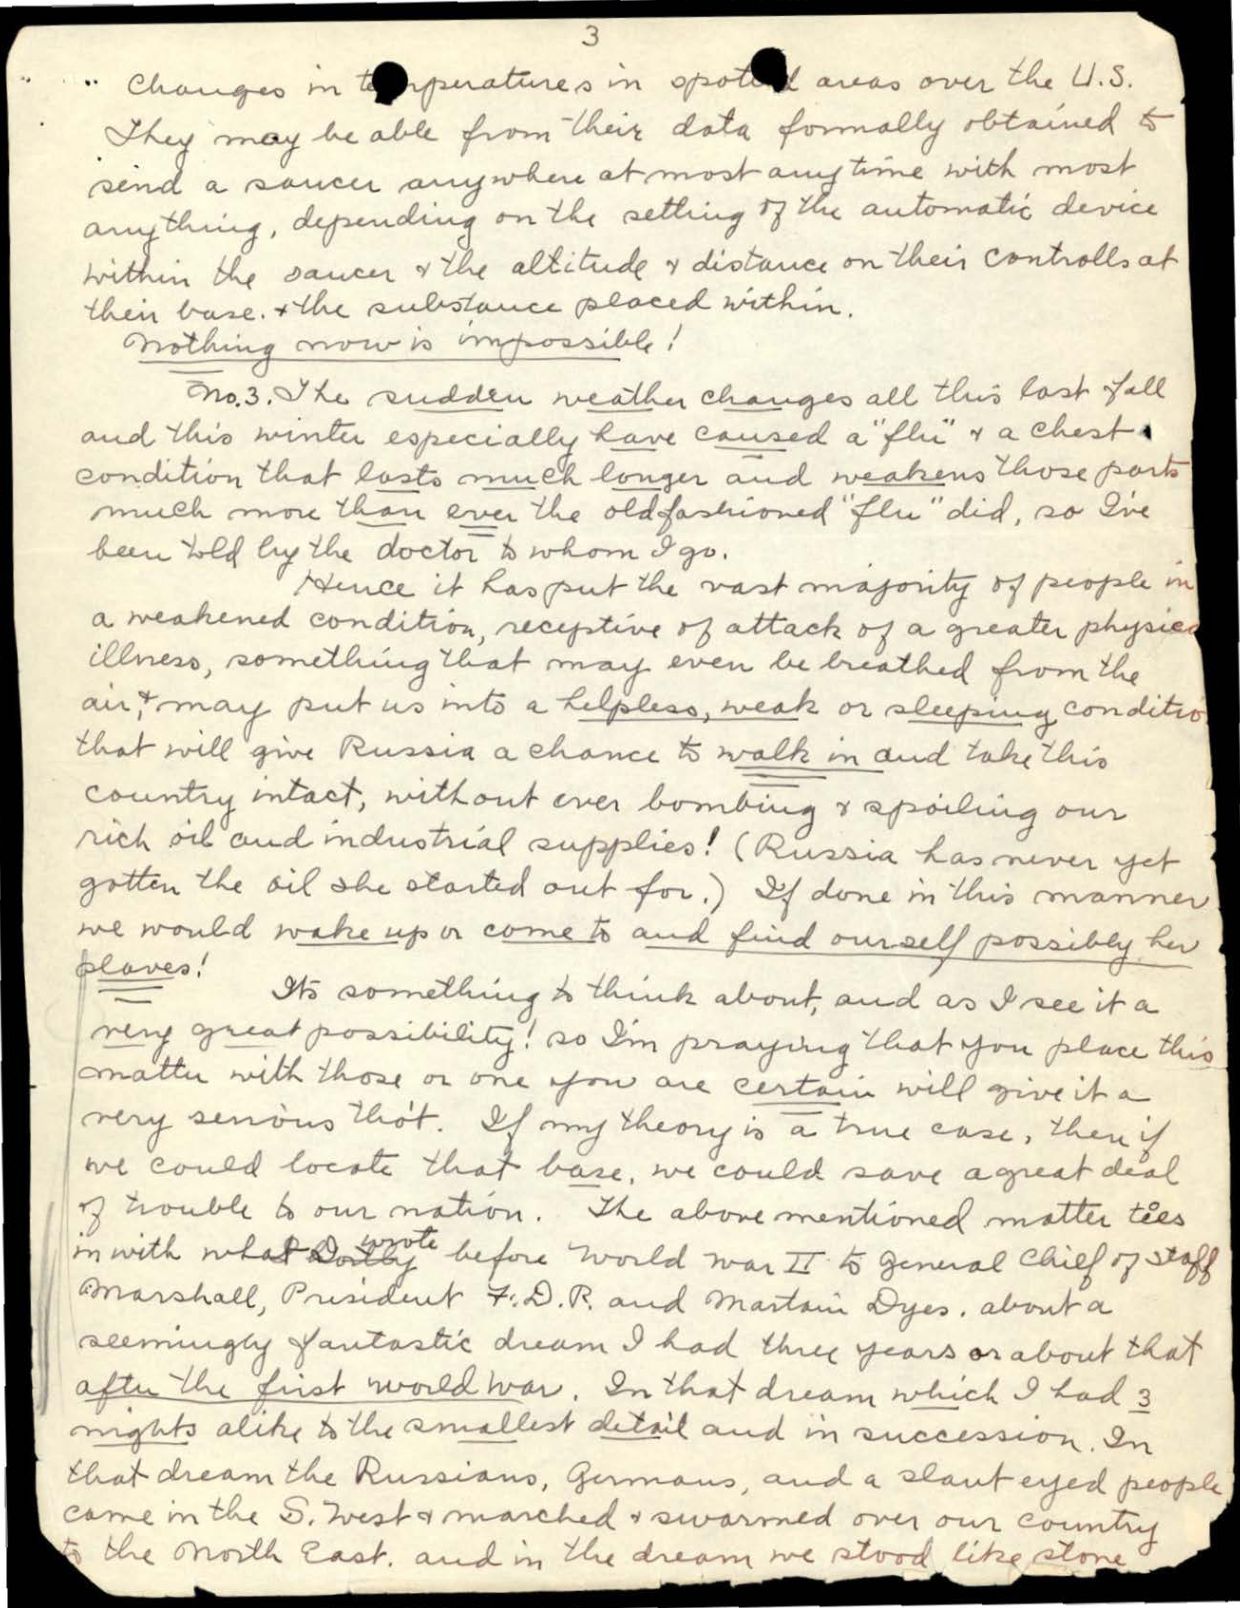 3
changes in temperatures in spotted areas over the U.S.
They may be able from their data formally obtained to
send a saucer anywhere at most any time with most
anything, depending on the setting of the automatic device
within the saucer & the altitude & distance on their controlls at
their base. & the substance placed within.
Nothing now is impossible!
No. 3. The sudden weather changes all this last fall
and this winter especially have caused a "flu" & a chest
condition that lasts much longer and weakens those parts
much more than ever the oldfashioned "flu" did, so I've
been told by the doctor to whom I go.
Hence it has put the vast majority of people in
a weakened condition, receptive of attack of a greater physica
illness, something that may even be breathed from the
air, & may put us into a helpless, weak or sleeping conditio
that will give Russia a chance to walk in and take this
country intact, without ever bombing & spoiling our
rich oil and industrial supplies! (Russia has never yet
gotten the oil she started out for.) If done in this manner
we would wake up or come to and find ourself possibly her
slaves!
Its something to think about, and as I see it a
very great possibility! so I'm praying that you place this
matter with those or one you are certain will give it a
very serious thot. If my theory is a true case, then if
we could locate that base, we could save a great deal
of trouble to our nation. The above mentioned matter ties
in with what I wrote before World War II to General Chief of Staff
Marshall, President F.D.R. and Martain Dyes. about a
seemingly fantastic dream I had three years or about that
after the first world war. In that dream which I had 3
nights alike to the smallest detail and in succession. In
that dream the Russians, Germans, and a slant eyed people
came in the S. West & marched & swarmed over our country
to the North East. and in the dream we stood like stone